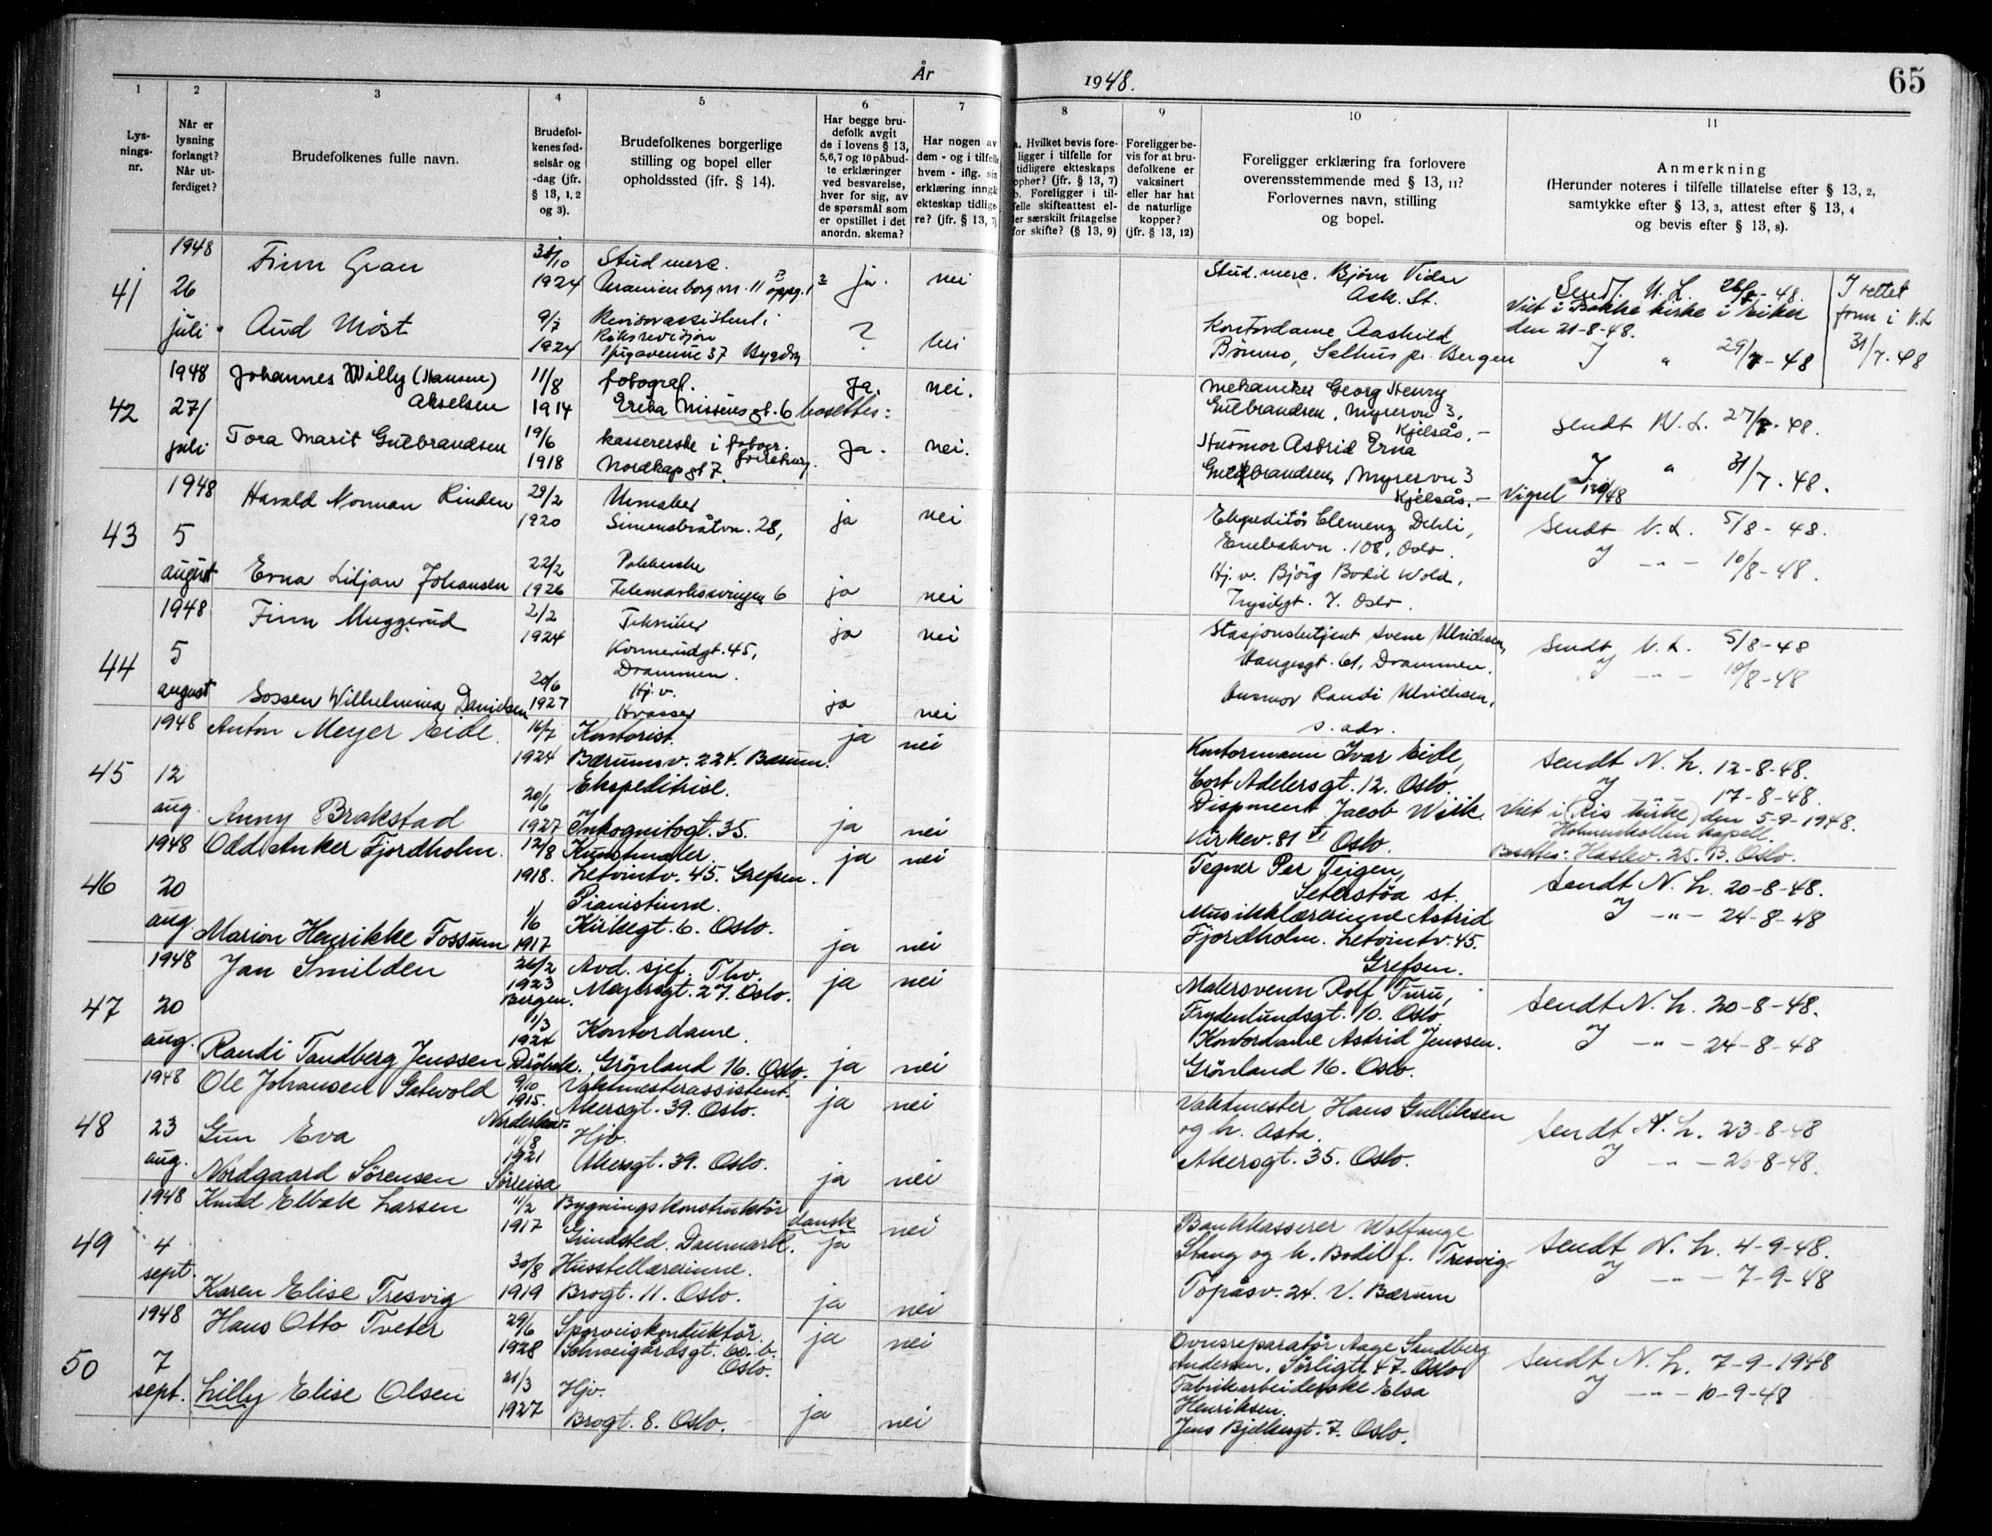 År
1948.
65
1
2
3
4
5
6
7
8
9
10
11
Lys-
nings-
nr.
Når er
lysning
forlangt?
Når ut-
ferdiget?
Brudefolkenes fulle navn.
Brudefol-
kenes fød-
selsår og
-dag (jfr.
§ 13, 1, 2
og 3).
Brudefolkenes borgerlige
stilling og bopel eller
opholdssted (jfr. § 14).
Har begge bru-
defolk avgit
de i lovens § 13,
5,6,7 og 10 påbud-
te erklæringer
ved besvarelse,
hver for sig, av
de spørsmål som
er opstillet i det
anordn. skema?
Har nogen av
dem - og i tilfelle
hvem - iflg. sin
erklæring inngå
ekteskap tidlige-
re? (jfr. § 13, 7)
a. Hvilket bevis fore-
ligger i tilfelle for
tidligere ekteskaps
ophør? (jfr. § 13, 7)
b. Foreligger i til-
felle skifteattest el-
ler særskilt fritagelse
for skifte? (§ 13, 9)
Foreligger be-
vis for at bru-
defolkene er
vaksinert
eller har hat
de naturlige
kopper?
(jfr. § 13, 12)
Foreligger erklæring fra forlovere
overensstemmende med § 13, 11?
Forlovernes navn, stilling
og bopel.
Anmerkning
(Herunder noteres i tilfelle tillatelse efter § 13, 2,
samtykke efter § 13, 3, attest efter § 13, 4
og bevis efter § 13, 8).
41
1948
26
juli
Finn Gran
1924
Stud merc.
Uranienborgv. 11 oppg. 1
ja.
nei
Stud. merc. Bjørn Vidar
Ask. St.
Sendt N. L. 26/7-48.
Viet i Bakke kirke i Eiker
den 21-8-48.
J " 29/7-48
J rettet
form i N.L
31/7-48
Aud Møst
9/7
1924
Revisorassistent i
Riksrevisjon
Bygdøy
?
nei
Kontordame Aashild
Bønno, Salhus pr. Bergen
42
1948
27/
juli
Johannes Willy (Hansen)
Akselsen
11/8
1914
fotograf.
Erika Nissens gt. 6 bosettes:
Ja.
nei.
Mekaniker Georg Henry
Gulbrandsen, Myrervn 3,
Kjelsås.-
Sendt N. L. 27/7-48.
Tora Marit Gulbrandsen
19/6
1918
kassererske i fotogr.
Nordkapgt 7.
Ja.
nei.
Husmor Astrid Erna
Gulbrandsen, Myrervn 3
Kjelsås.-
J " 31/7-48.
Vigsel
43
1948
5
august
Harald Norman Rinden
29/2
1920
Urmaker
Simensbråtvn. 28,
ja
nei
Ekspeditør Clemenz Dehli,
Enebakvn. 108, Oslo.
Sendt N. L. 5/8-48.
J -"- 10/8-48.
Erna Liljan Johansen
22/2
1926
Pakkerske
Telemarkssvingen 6
ja
nei
Hj. v. Bjørg Bodil Wold,
Trysilgt. 7. Oslo.
44
1948
5
august
Finn Muggerud
2/2
1924
Tekniker
Konnerudgt. 45,
Drammen.
ja
nei
Stasjonsbetjent Svene Ulrichsen,
Haugesgt. 61, Drammen.
Sendt N. L. 5/8-48
J -"- 10/8-48
Sossen Wilhelmina Danielsen
20/6
1927
Hj. v.
Hvasser
ja
nei
Husmor Randi Ulrichsen,
s. adr.
45
1948
12
aug.
Anton Meyer Eide.
16/7
1924
Kontorist.
Bærumsv. 224. Bærum.
ja
nei
Kontormann Ivar Eide,
Cort Adelersgt. 12. Oslo.
Sendt N. L. 12-8-48.
J 17-8-48.
Anny Brakstad
20/6
1927
Ekspeditrise.
Inkognitogt. 35.
ja
nei
Dispment Jacob Wiik.
Kirkev. 81 VI Oslo.
Viet i (Ris kirke) den 5-9-1948.
Holmenkollen kapell.
Bosettes: Haslev. 25. B. Oslo.
46
1948
20
aug.
Odd Anker Fjordholm.
12/8
1918.
Kunstmaler.
Letvintv. 45. Grefsen.
ja
nei
Tegner Per Teigen,
Seterstøa st.
Sendt N. L. 20-8-48.
J -"- 24-8-48
Marion Henrikke Fossum
1/6
1917
Pianistinne.
Kirkegt. 6. Oslo.
ja
nei
Musikklærerinne Astrid
Fjordholm. Letvintv. 45.
Grefsen.
47
1948
20
aug.
Jan Smilden
26/2
1923
Bergen.
Avd. sjef. Thv.
Meyersgt. 27. Oslo.
ja
nei
Malersvenn Rolf Furu,
Frydenlundsgt. 10. Oslo
Sendt N. L. 20-8-48.
J -"- 24-8-48
Randi Tandberg Jenssen
1/3
1924
Drøbak.
Kontordame.
Grønland 16. Oslo.
ja
nei
Kontordame Astrid Jenssen.
Grønland 16. Oslo.
48
1948
23
aug.
Ole Johansen Gatevold
9/10
1915.
Vaktmesterassistent.
Akersgt. 39. Oslo.
ja
nei
Vaktmester Hans Gulliksen
og h. Asta.
Akersgt. 35. Oslo.
Sendt N. L. 23-8-48
J -"- 26-8-48.
Gun Eva
Nordgaard Sørensen
11/8
1921
Sørreisa
Hjv.
Akersgt. 39. Oslo.
ja
nei
49
1948
4
sept.
Knud Elbæk Larsen
11/2
1917
Bygningskonstruktør
Grindsted. Danmark.
dansk
ja
nei
Bankkasserer Wolfange
Stang og h. Bodil f. Tresvig.
Topåsv. 24. V. Bærum
Sendt N. L. 4-9-48.
J -"- 7-9-48
Karen Elise Tresvig
30/8
1919
Husstellærerinne.
Brogt. 11. Oslo.
ja
nei
50
1948
7
sept.
Hans Otto Tveter
29/6
1928
Sporveiskonduktør.
Schweigårdsgt. 60. b.
Oslo.
ja
nei
Ovnsreparatør Aage Sandberg
Andersen. Sørligt. 47. Oslo
Sendt N. L. 7-9-1948
J -"- 10-9-48
Lilly Elise Olsen
21/3
1927
Hjv.
Brogt. 8. Oslo.
ja
nei
Fabrikarbeiderske Elsa
Henriksen.
Jens Bjelkesgt. 7. Oslo.